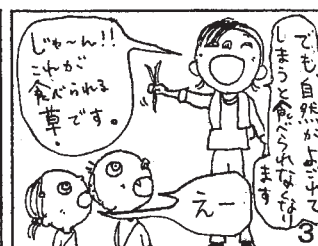 でも、自然がよごれて
しまうと食べられなくなり
ます
じゃ〜ん!!
これが
食べられる
草です。
えー
3